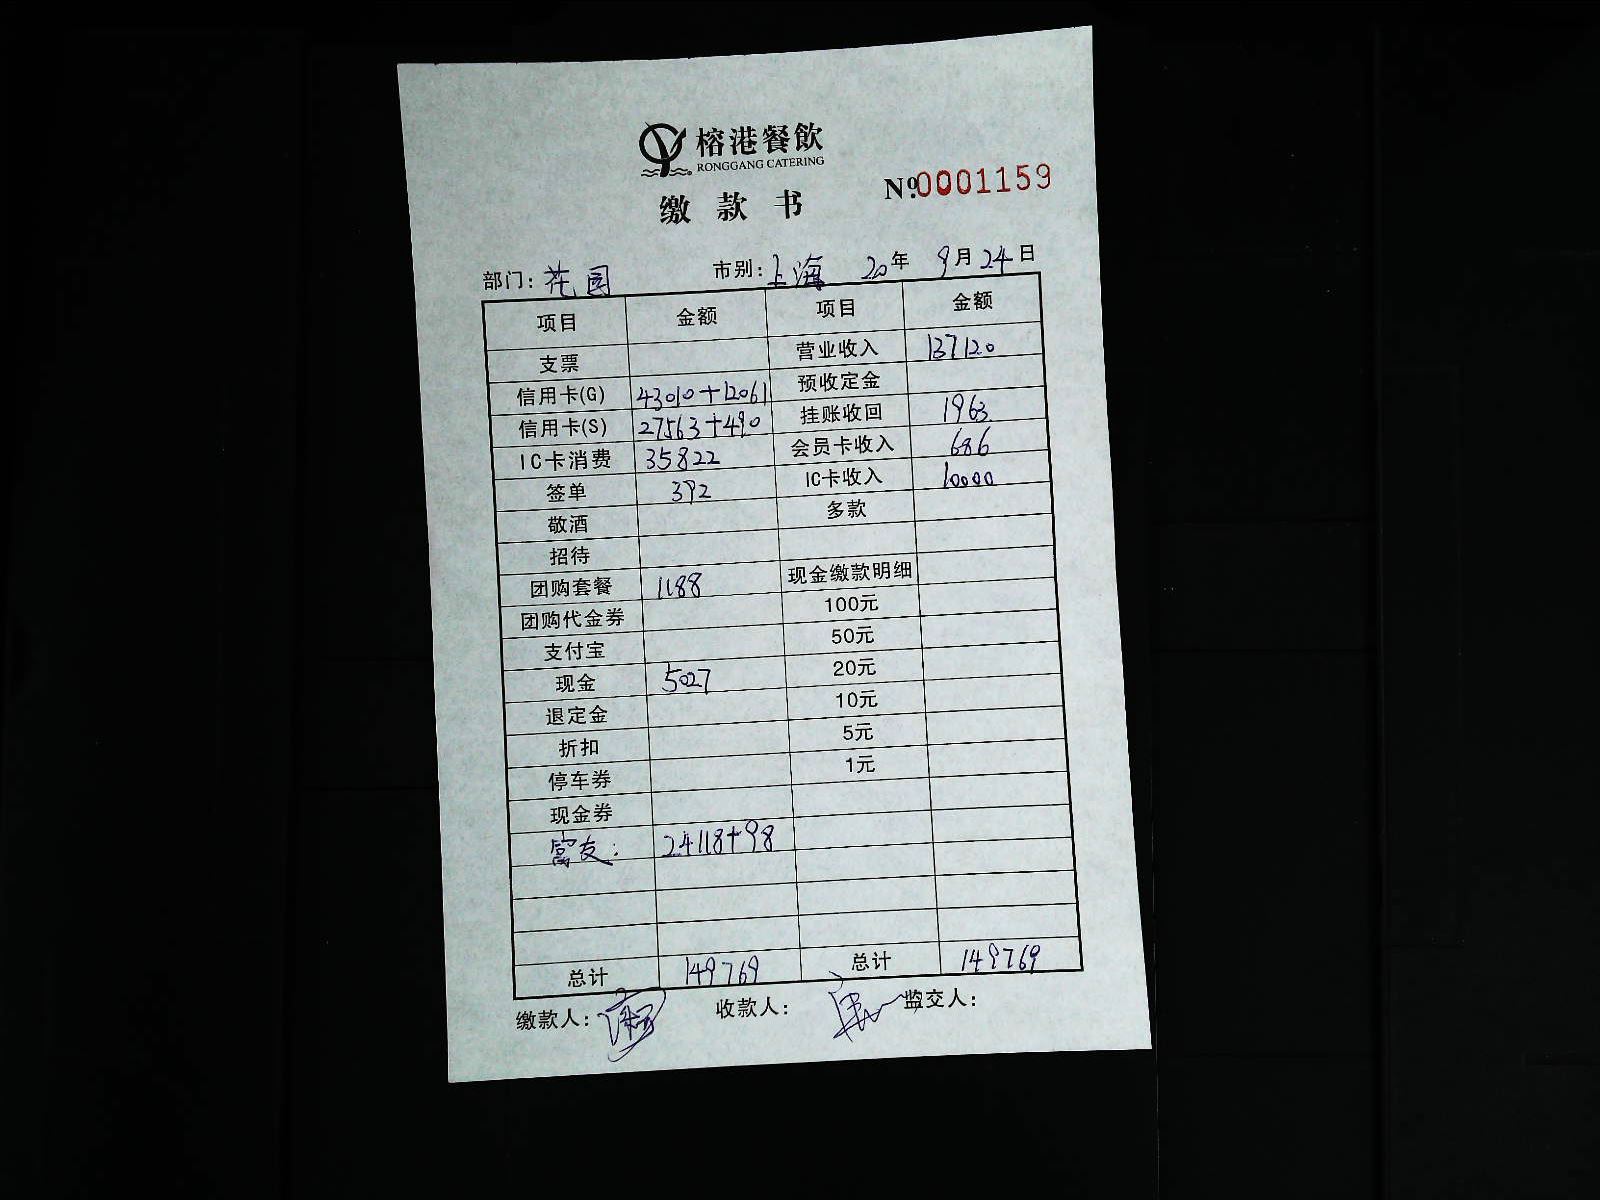 榕港餐飲
RONGGANG CATERING
缴款书
Nº.0001159
部门：花园 市别：上海 20年 9月24日
项目 金额 项目 金额
支票 营业收入 137120
信用卡(G) 43010+12061 预收定金
信用卡(S) 27563+490 挂账收回 1963
IC卡消费 35822 会员卡收入 686
签单 392 IC卡收入 10000
敬酒 多款
招待
团购套餐 1188 现金缴款明细
团购代金券 100元
支付宝 50元
现金 5027 20元
退定金 10元
折扣 5元
停车券 1元
现金券
富友： 24118+98
总计 149769 总计 149769
缴款人： 收款人： 监交人：